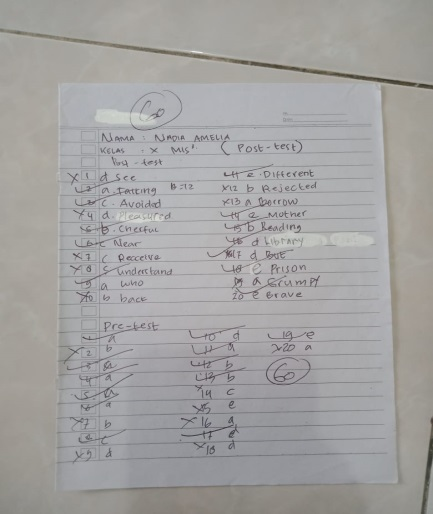 60
NAMA : NADIA AMELIA
KELAS : X MIS' (Post-test)
Post-test
X 1 d see
2 a Falling B=12
3 c. Avoided
X 4 d. Pleasured
5 b. Cheerful
6 c Near
X 7 c Receive
X 8 c understand
9 a who
X 10 b back
11 e. Different
X12 b Rejected
X13 a Borrow
14 e Mother
15 b Reading
16 d Library
X17 d But
18 e Prison
19 a Grumpy
20 e Brave
Pre-test
1 a
X 2 b
3
4 a
5
6 a
X 7 b
8 c
X 9 d
10 d
11 a
12 b
13 b
X14 c
X15 e
X 16 a
17 e
X 18 d
19 e
X20 a
60